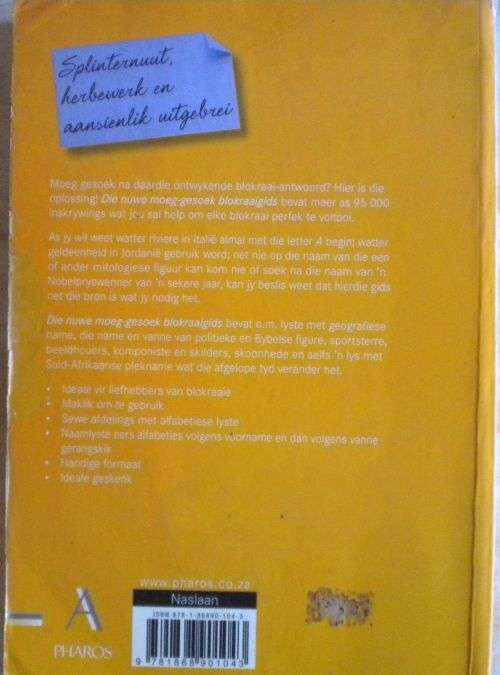 Splinternuut,
herbewerk en
aansienlik uitgebrei
Moeg gesoek na daardie ontwykende blokraai-antwoord? Hier is die
oplossing! Die nuwe moeg-gesoek blokraaigids bevat meer as 95 000
inskrywings wat jou sal help om elke blokraai perfek te voltooi.
As jy wil weet watter riviere in Italië almal met die letter A begin; watter
geldeenheid in Jordanië gebruik word; net nie op die naam van die een
of ander mitologiese figuur kan kom nie of soek na die naam van 'n
Nobelpryswenner van 'n sekere jaar, kan jy beslis weet dat hierdie gids
net die bron is wat jy nodig het.
Die nuwe moeg-gesoek blokraaigids bevat o.m. lyste met geografiese
name, die name en vanne van politieke en Bybelse figure, sportsterre,
beeldhouers, komponiste en skilders, skoonhede en selfs 'n lys met
Suid-Afrikaanse plekname wat die afgelope tyd verander het.
• Ideaal vir liefhebbers van blokraaie
• Maklik om te gebruik
• Sewe afdelings met alfabetiese lyste
• Naamlyste eers alfabeties volgens voorname en dan volgens vanne
gerangskik
• Handige formaat
• Ideale geskenk
www.pharos.co.za
Naslaan
ISBN 978-1-86890-104-3
9 781868 901043
PHAROS